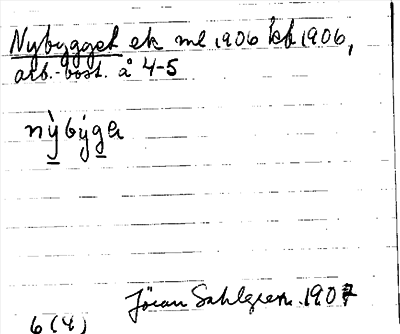 Nybygget ek ml 1906 kb 1906,
arb.-bost. å 4-5
nỳbýga
Jöran Sahlgren 1907
6 (4)